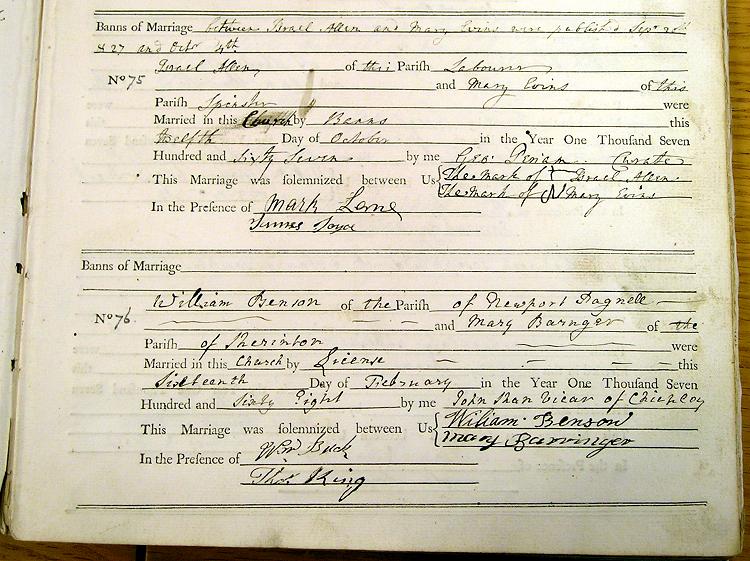 Banns of Marriage between Israel Allen and Mary Evins were published Sepr 20th
& 27 and Octr 4th
Israel Allen of this Parish Labourer
No 75 and Mary Evins of this
Parish Spinster were
Married in this Church by Banns this
twelfth Day of October in the Year One Thousand Seven
Hundred and Sixty Seven by me Geo: Periam Curate
This Marriage was solemnized between Us The mark of + Israel Allen
The mark of Mary Evins
In the Presence of Mark Lane
James Joyce
Banns of Marriage
William Benson of the Parish of Newport Pagnell
No 76 and Mary Barnger of the
Parish of Sherinton were
Married in this Church by License this
Sixteenth Day of February in the Year One Thousand Seven
Hundred and Sixty Eight by me John Shan Vicar of Chicheley
This Marriage was solemnized between Us William Benson
Mary Barringer
In the Presence of Wm Buck
Thos King